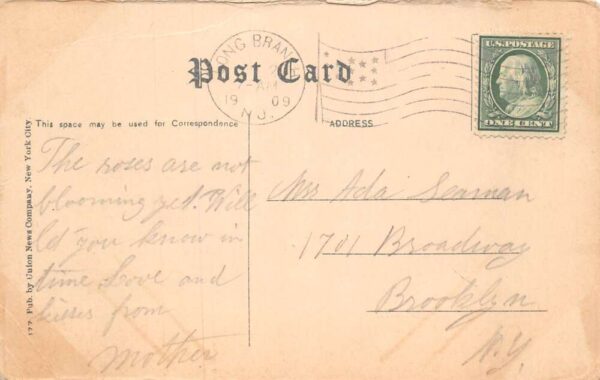 LONG BRANCH
7-AM
1909
N.J.
Post Card
U.S. POSTAGE
ONE CENT
This space may be used for Correspondence
ADDRESS
The roses are not
blooming yet. Will
let you know in
time Love and
kisses from
Mother
Mrs Ada Seaman
1701 Broadway
Brooklyn
N.Y.
Pub. by Union News Company, New York City